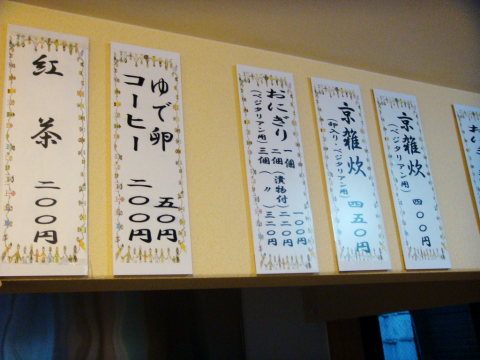 紅茶 二〇〇円
ゆで卵 五〇円
コーヒー 二〇〇円
おにぎり
(ベジタリアン用)
一個 一〇〇円
二個(漬物付) 二二〇円
三個(〃) 三二〇円
京雑炊 四五〇円
(卵入り・ベジタリアン用)
京雑炊 四〇〇円
(ベジタリアン用)